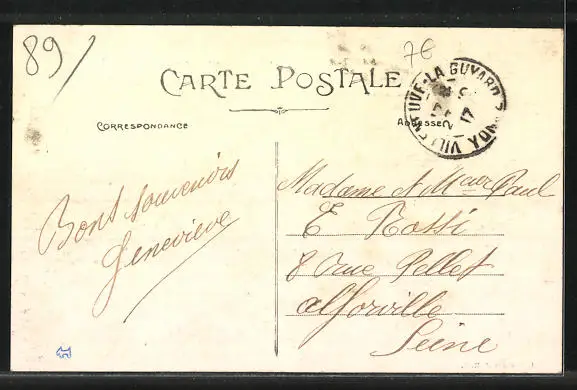 89/
7€
CARTE POSTALE
VILLENEUVE-LA-GUYARD YONNE
17
CORRESPONDANCE
ADRESSE
Bons souvenirs
Geneviève
Madame et Mr Paul
E Rossi
8 rue Pellet
Alforville
Seine